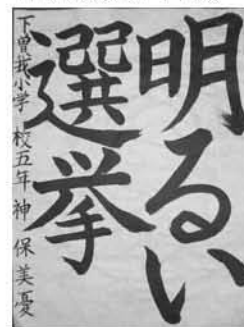 明るい
選挙
下曽我小学校五年 神保美憂